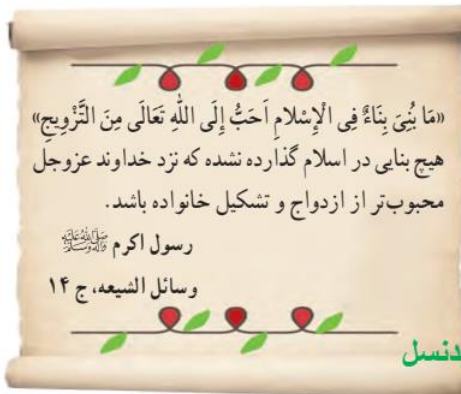 «مَا بُنِيَ بِنَاءٌ فِي الْإِسْلامِ اَحَبُّ إِلَى اللهِ تَعَالَى مِنَ التَّزْوِيجِ»
هیچ بنایی در اسلام گذارده نشده که نزد خداوند عزوجل
محبوب‌تر از ازدواج و تشکیل خانواده باشد.
رسول اکرم ﷺ
وسائل الشیعه، ج ۱۴
دنسل